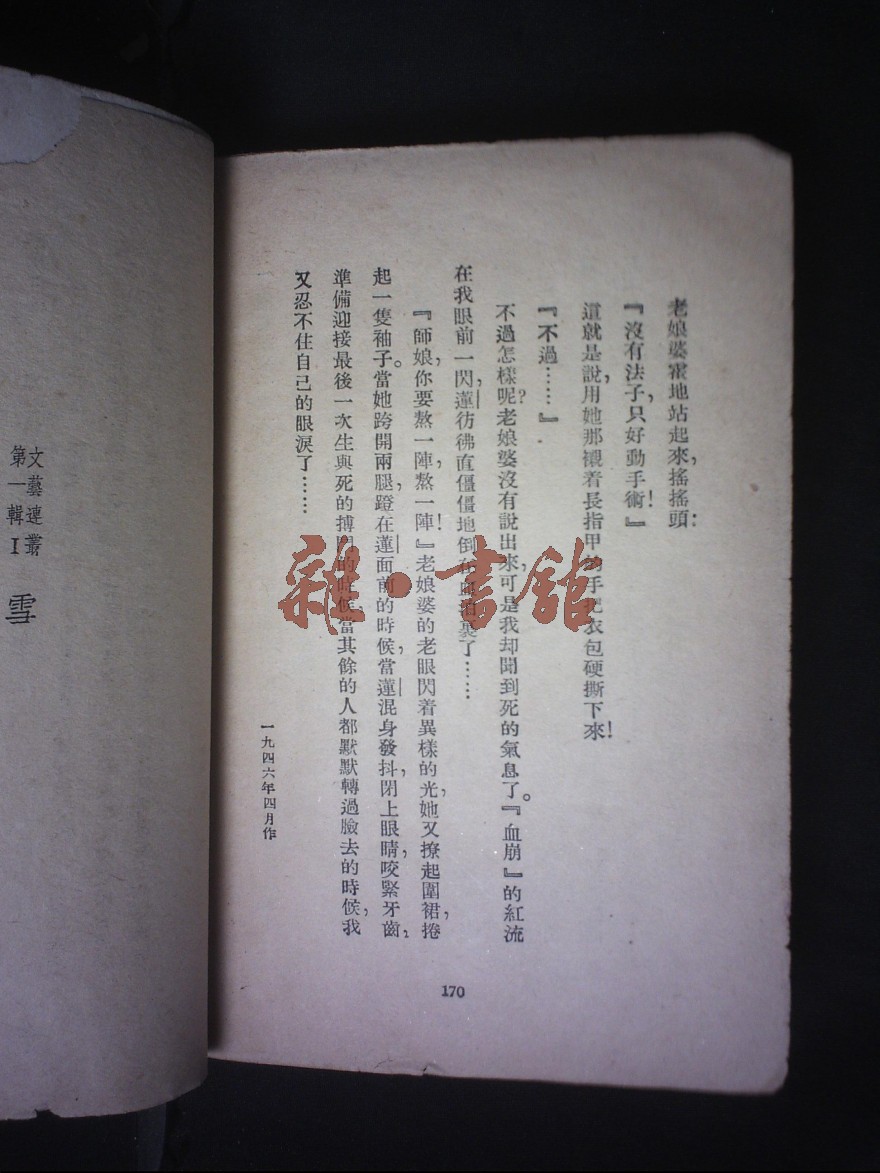 老娘婆霍地站起來，搖搖頭：
『沒有法子，只好動手術！』
這就是說，用她那襯着長指甲手把衣包硬撕下來！
『不過……』
不過怎樣呢？老娘婆沒有說出來，可是我却聞到死的氣息了。『血崩』的紅流
在我眼前一閃，蓮彷彿直僵僵地倒在血泊裹了……
『師娘，你要熬一陣，熬一陣！』老娘婆的老眼閃着異樣的光，她又撩起圍裙，捲
起一隻袖子。當她跨開兩腿，蹬在蓮面前的時候，當蓮混身發抖，閉上眼睛，咬緊牙齒，
準備迎接最後一次生與死的搏鬥的時候，當其餘的人都默默轉過臉去的時候，我
又忍不住自己的眼淚了……
一九四六年四月作
170
雜·書館
文藝連叢
第一輯 I
雪